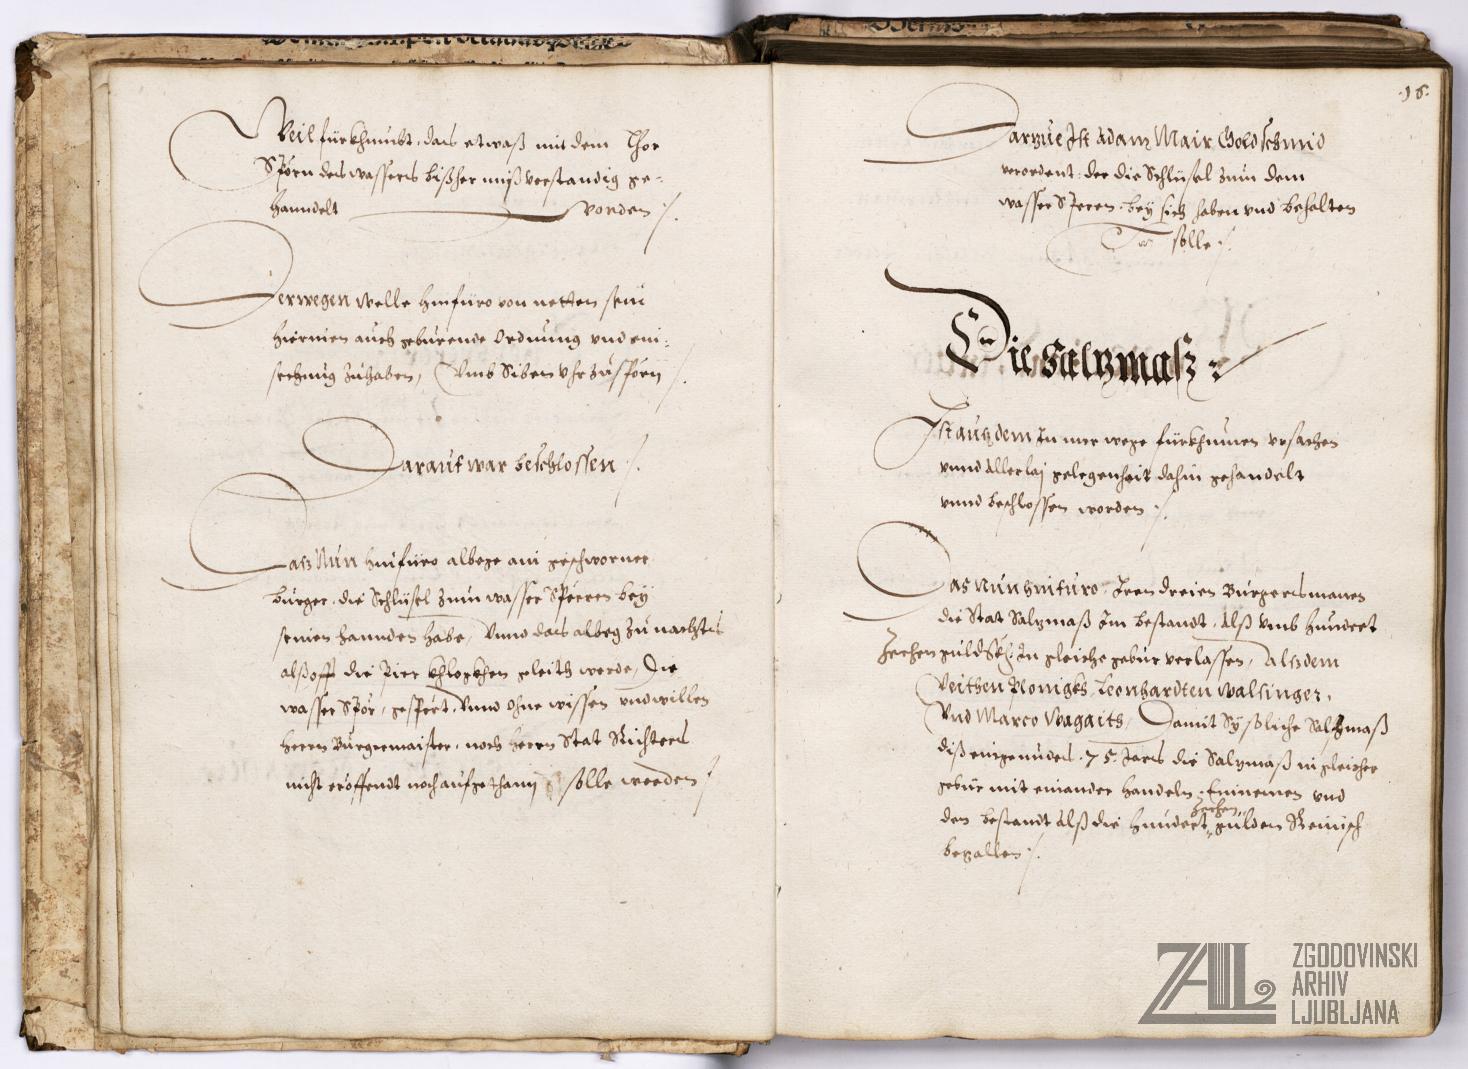 Weil fürkhumbt, das etwaß mit dem Thor
Spörn des wassers bißher mißverstandig ge-
hanndelt worden
Derwegen welle hinfüro von netten sein
hierinen auch gebürende Ordnung und ein-
sechung zuhaben, Umb Siben Uhr zu spörn
Darauf war beschlossen
Das Nun hinfüro albege ain geschworner
burger, die Schlüsel zum wasser Spörren bey
seinen hannden habe, Unnd das albeg zu nachts
alßofft die Pier khlogkhen geleith werde, Die
wasser Spör, gespert, Unnd ohne wissen und willen
herrn Burgermaister, noch herrn Stat Richters
nicht eröffendt noch aufgethann solle werden
16
Darzue Ist Adam Mair Goldschmid
verordent, der die Schlüsel zum dem
wasser Speren, bey sich haben und behalten
solle
Die Salzmasz
Ist auch dem In mer wege fürkhumen ursachen
unnd Allerlaj gelegenhait dahin gehandelt
unnd beschlossen worden
Das Nun hinfuro Iren dreien Burgersmanen
die Stat Salzmaß Im bestandt, Alß umb hundert
Zechen guld In gleiche gebür verlassen, Alsdem
Veithen Leonhardten Walsinger,
Und Marco Damit Sy Solliche Salzmaß
diß eingeundes 75 Jars die Salzmaß in gleicher
gebür mit einander handeln, Einnemen und
zechen
den bestandt Alß die hundert gulden Reinisch
bezallen
ZAL ZGODOVINSKI
ARHIV
LJUBLJANA